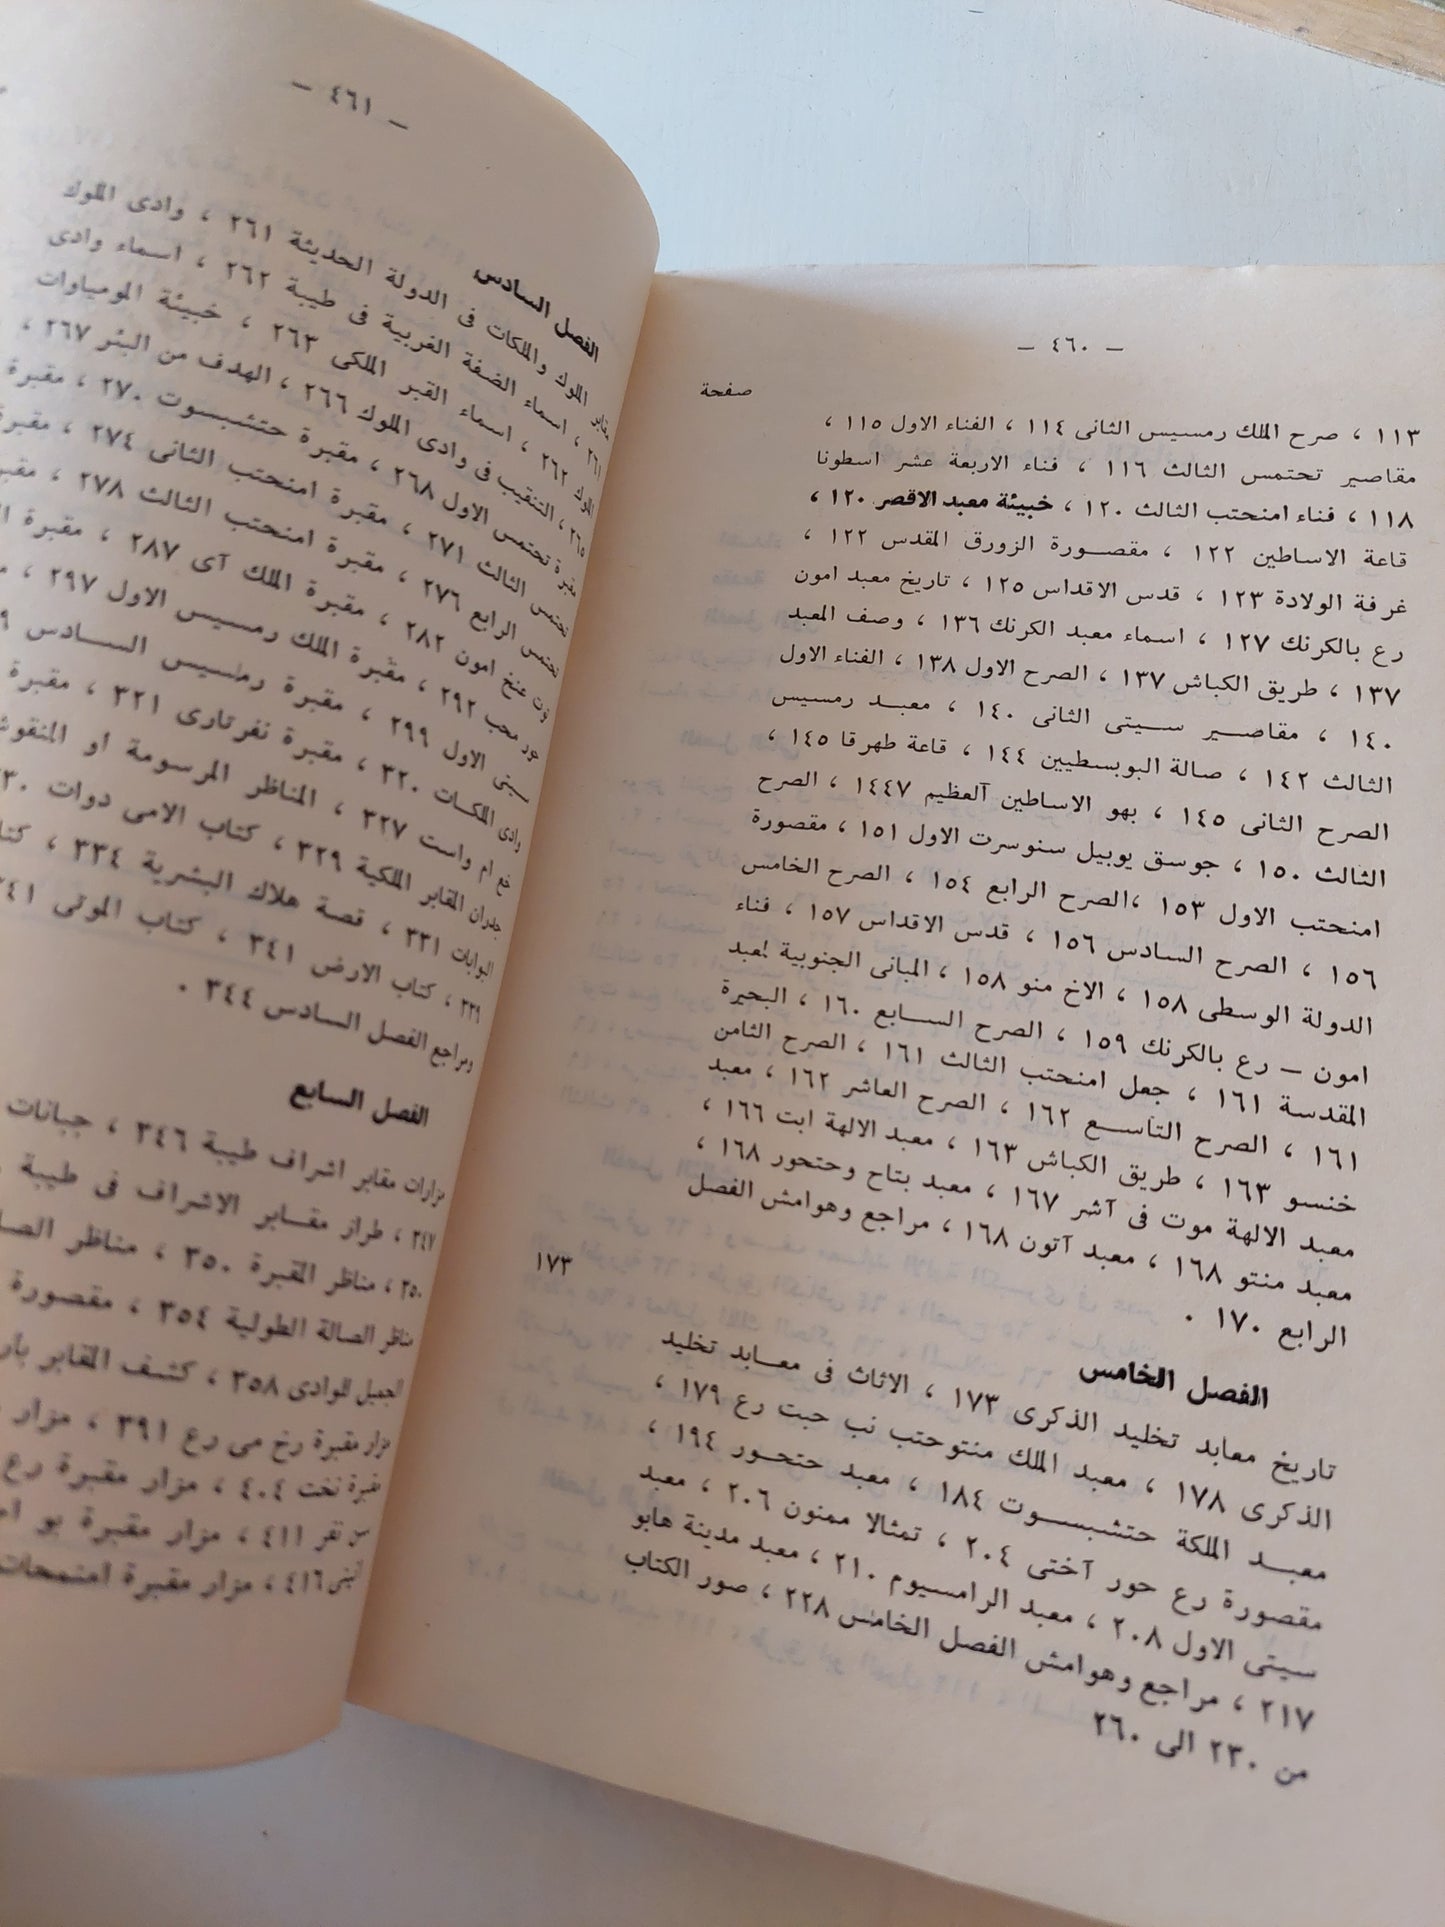 — ٤٦٠ —
صفحة
١١٣ ، صرح الملك رمسيس الثانى ١١٤ ، الفناء الاول ١١٥ ،
مقاصير تحتمس الثالث ١١٦ ، فناء الاربعة عشر اسطونا
١١٨ ، فناء امنحتب الثالث ١٢٠ ، خبيئة معبد الاقصر ١٢٠ ،
قاعة الاساطين ١٢٢ ، مقصورة الزورق المقدس ١٢٢ ،
غرفة الولادة ١٢٣ ، قدس الاقداس ١٢٥ ، تاريخ معبد امون
رع بالكرنك ١٢٧ ، اسماء معبد الكرنك ١٣٦ ، وصف المعبد
١٣٧ ، طريق الكباش ١٣٧ ، الصرح الاول ١٣٨ ، الفناء الاول
١٤٠ ، مقاصير سيتى الثانى ١٤٠ ، معبد رمسيس
الثالث ١٤٢ ، صالة البوبسطيين ١٤٤ ، قاعة طهرقا ١٤٥ ،
الصرح الثانى ١٤٥ ، بهو الاساطين العظيم ١٤٤٧ ، الصرح
الثالث ١٥٠ ، جوسق يوبيل سنوسرت الاول ١٥١ ، مقصورة
امنحتب الاول ١٥٣ ،الصرح الرابع ١٥٤ ، الصرح الخامس
١٥٦ ، الصرح السادس ١٥٦ ، قدس الاقداس ١٥٧ ، فناء
الدولة الوسطى ١٥٨ ، الاخ منو ١٥٨ ، المبانى الجنوبية لمعبد
امون — رع بالكرنك ١٥٩ ، الصرح السابع ١٦٠ ، البحيرة
المقدسة ١٦١ ، جعل امنحتب الثالث ١٦١ ، الصرح الثامن
١٦١ ، الصرح التاسع ١٦٢ ، الصرح العاشر ١٦٢ ، معبد
خنسو ١٦٣ ، طريق الكباش ١٦٣ ، معبد الالهة ابت ١٦٦ ،
معبد الالهة موت فى آشر ١٦٧ ، معبد بتاح وحتحور ١٦٨ ،
معبد منتو ١٦٨ ، معبد آتون ١٦٨ ، مراجع وهوامش الفصل
الرابع ١٧٠ .
الفصل الخامس
١٧٣
تاريخ معابد تخليد الذكرى ١٧٣ ، الاثاث فى معابد تخليد
الذكرى ١٧٨ ، معبد الملك منتوحتب نب حبت رع ١٧٩ ،
معبد الملكة حتشبسوت ١٨٤ ، معبد حتحور ١٩٤ ،
مقصورة رع حور آختى ٢٠٤ ، تمثالا ممنون ٢٠٦ ، معبد
سيتى الاول ٢٠٨ ، معبد الرامسيوم ٢١٠ ، معبد مدينة هابو
٢١٧ ، مراجع وهوامش الفصل الخامس ٢٢٨ ، صور الكتاب
من ٢٣٠ الى ٢٦٠
— ٤٦١ —
الفصل السادس
مقابر الملوك والملكات فى الدولة الحديثة ٢٦١ ، وادى الملوك
٢٦١ ، اسماء الضفة الغربية فى طيبة ٢٦٢ ، اسماء وادى
الملوك ٢٦٢ ، اسماء القبر الملكى ٢٦٣ ، خبيئة المومياوات
٢٦٥ ، التنقيب فى وادى الملوك ٢٦٦ ، الهدف من البئر ٢٦٧ ،
مقبرة تحتمس الاول ٢٦٨ ، مقبرة حتشبسوت ٢٧٠ ، مقبرة
تحتمس الثالث ٢٧١ ، مقبرة امنحتب الثانى ٢٧٤ ، مقبرة
تحتمس الرابع ٢٧٦ ، مقبرة امنحتب الثالث ٢٧٨ ،
توت عنخ امون ٢٨٢ ، مقبرة الملك آى ٢٨٧ ، مقبرة
حور محب ٢٩٢ ، مقبرة الملك رمسيس الاول ٢٩٧ ،
سيتى الاول ٢٩٩ ، مقبرة رمسيس السادس
وادى الملكات ٣٢٠ ، مقبرة نفرتارى ٣٢١ ، مقبرة
خع ام واست ٣٢٧ ، المناظر المرسومة او
جدران المقابر الملكية ٣٢٩ ، كتاب الامى دوات
البوابات ٣٣١ ، قصة هلاك البشرية ٣٣٤ ،
٣٣٩ ، كتاب الارض ٣٤١ ، كتاب الموتى
ومراجع الفصل السادس ٣٤٤ .
الفصل السابع
مزارات مقابر اشراف طيبة ٣٤٦ ، جبانات
٣٤٧ ، طراز مقابر الاشراف فى طيبة
٣٥٠ ، مناظر المقبرة ٣٥٠ ، مناظر
مناظر الصالة الطولية ٣٥٤ ، مقصورة
الجميل للوادى ٣٥٨ ، كشف المقابر
مزار مقبرة رخ مى رع ٣٩١ ، مزار
مقبرة نخت ٤٠٤ ، مزار مقبرة رع
سن نفر ٤١١ ، مزار مقبرة
٤١٦ ، مزار مقبرة امنمحات